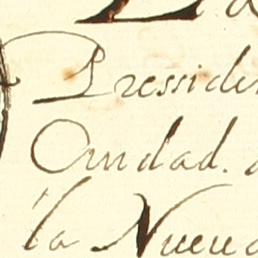 La
Pressiden
Ciudad. d
la Nueva